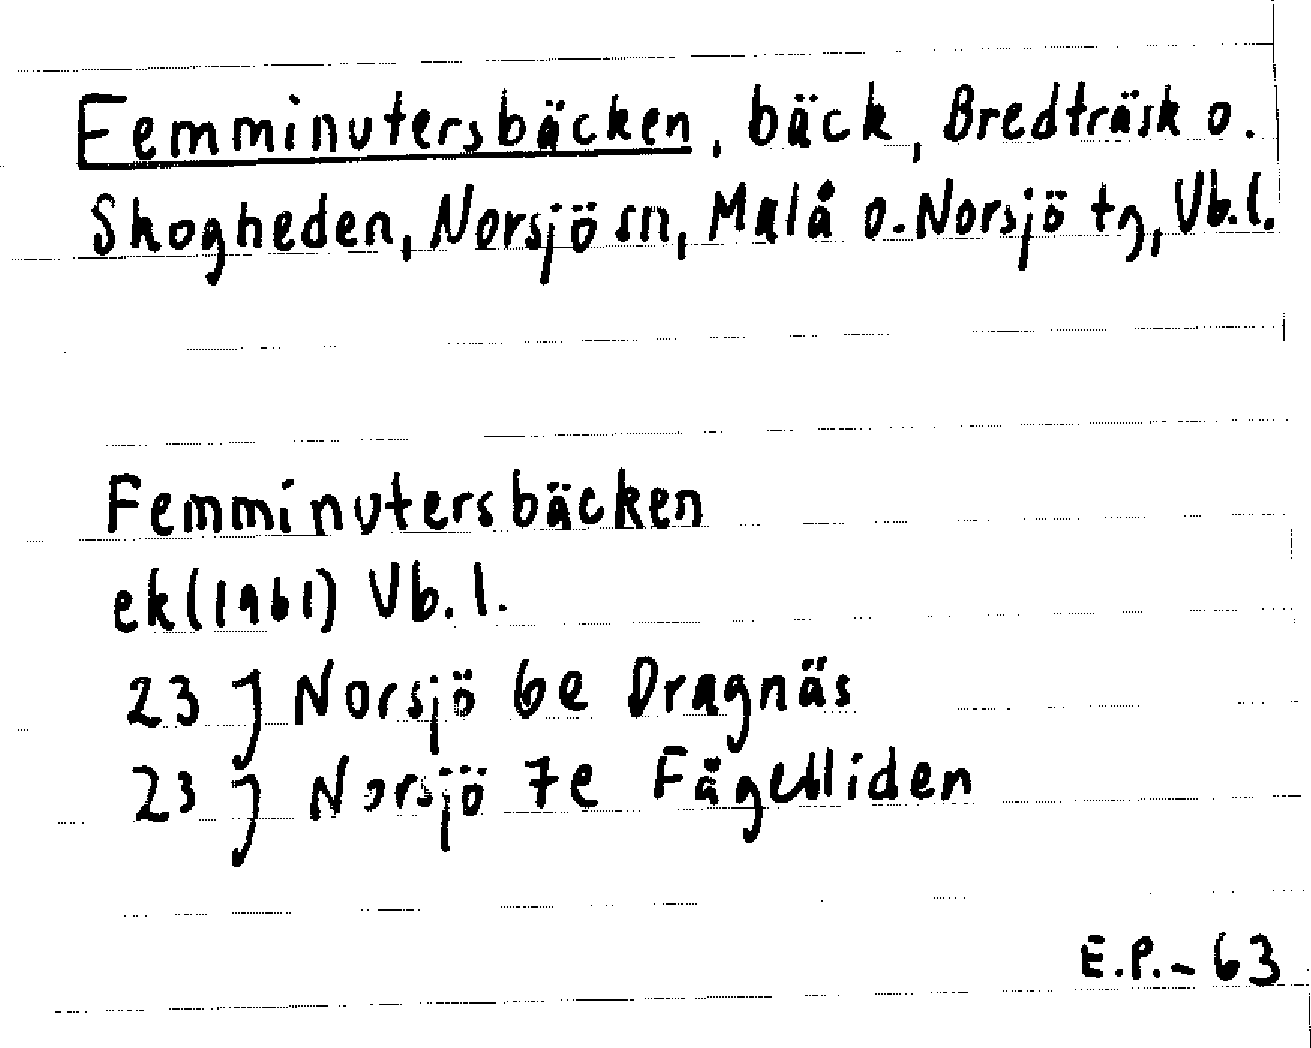 Femminutersbäcken, bäck, Bredträsk o.
Skogheden, Norsjö sn, Malå o. Norsjö tg, Vb.l.
Femminutersbäcken
ek (1961) Vb. l.
23 J Norsjö 6e Dragnäs
23 J Norsjö 7e Fågelliden
E.P.-63